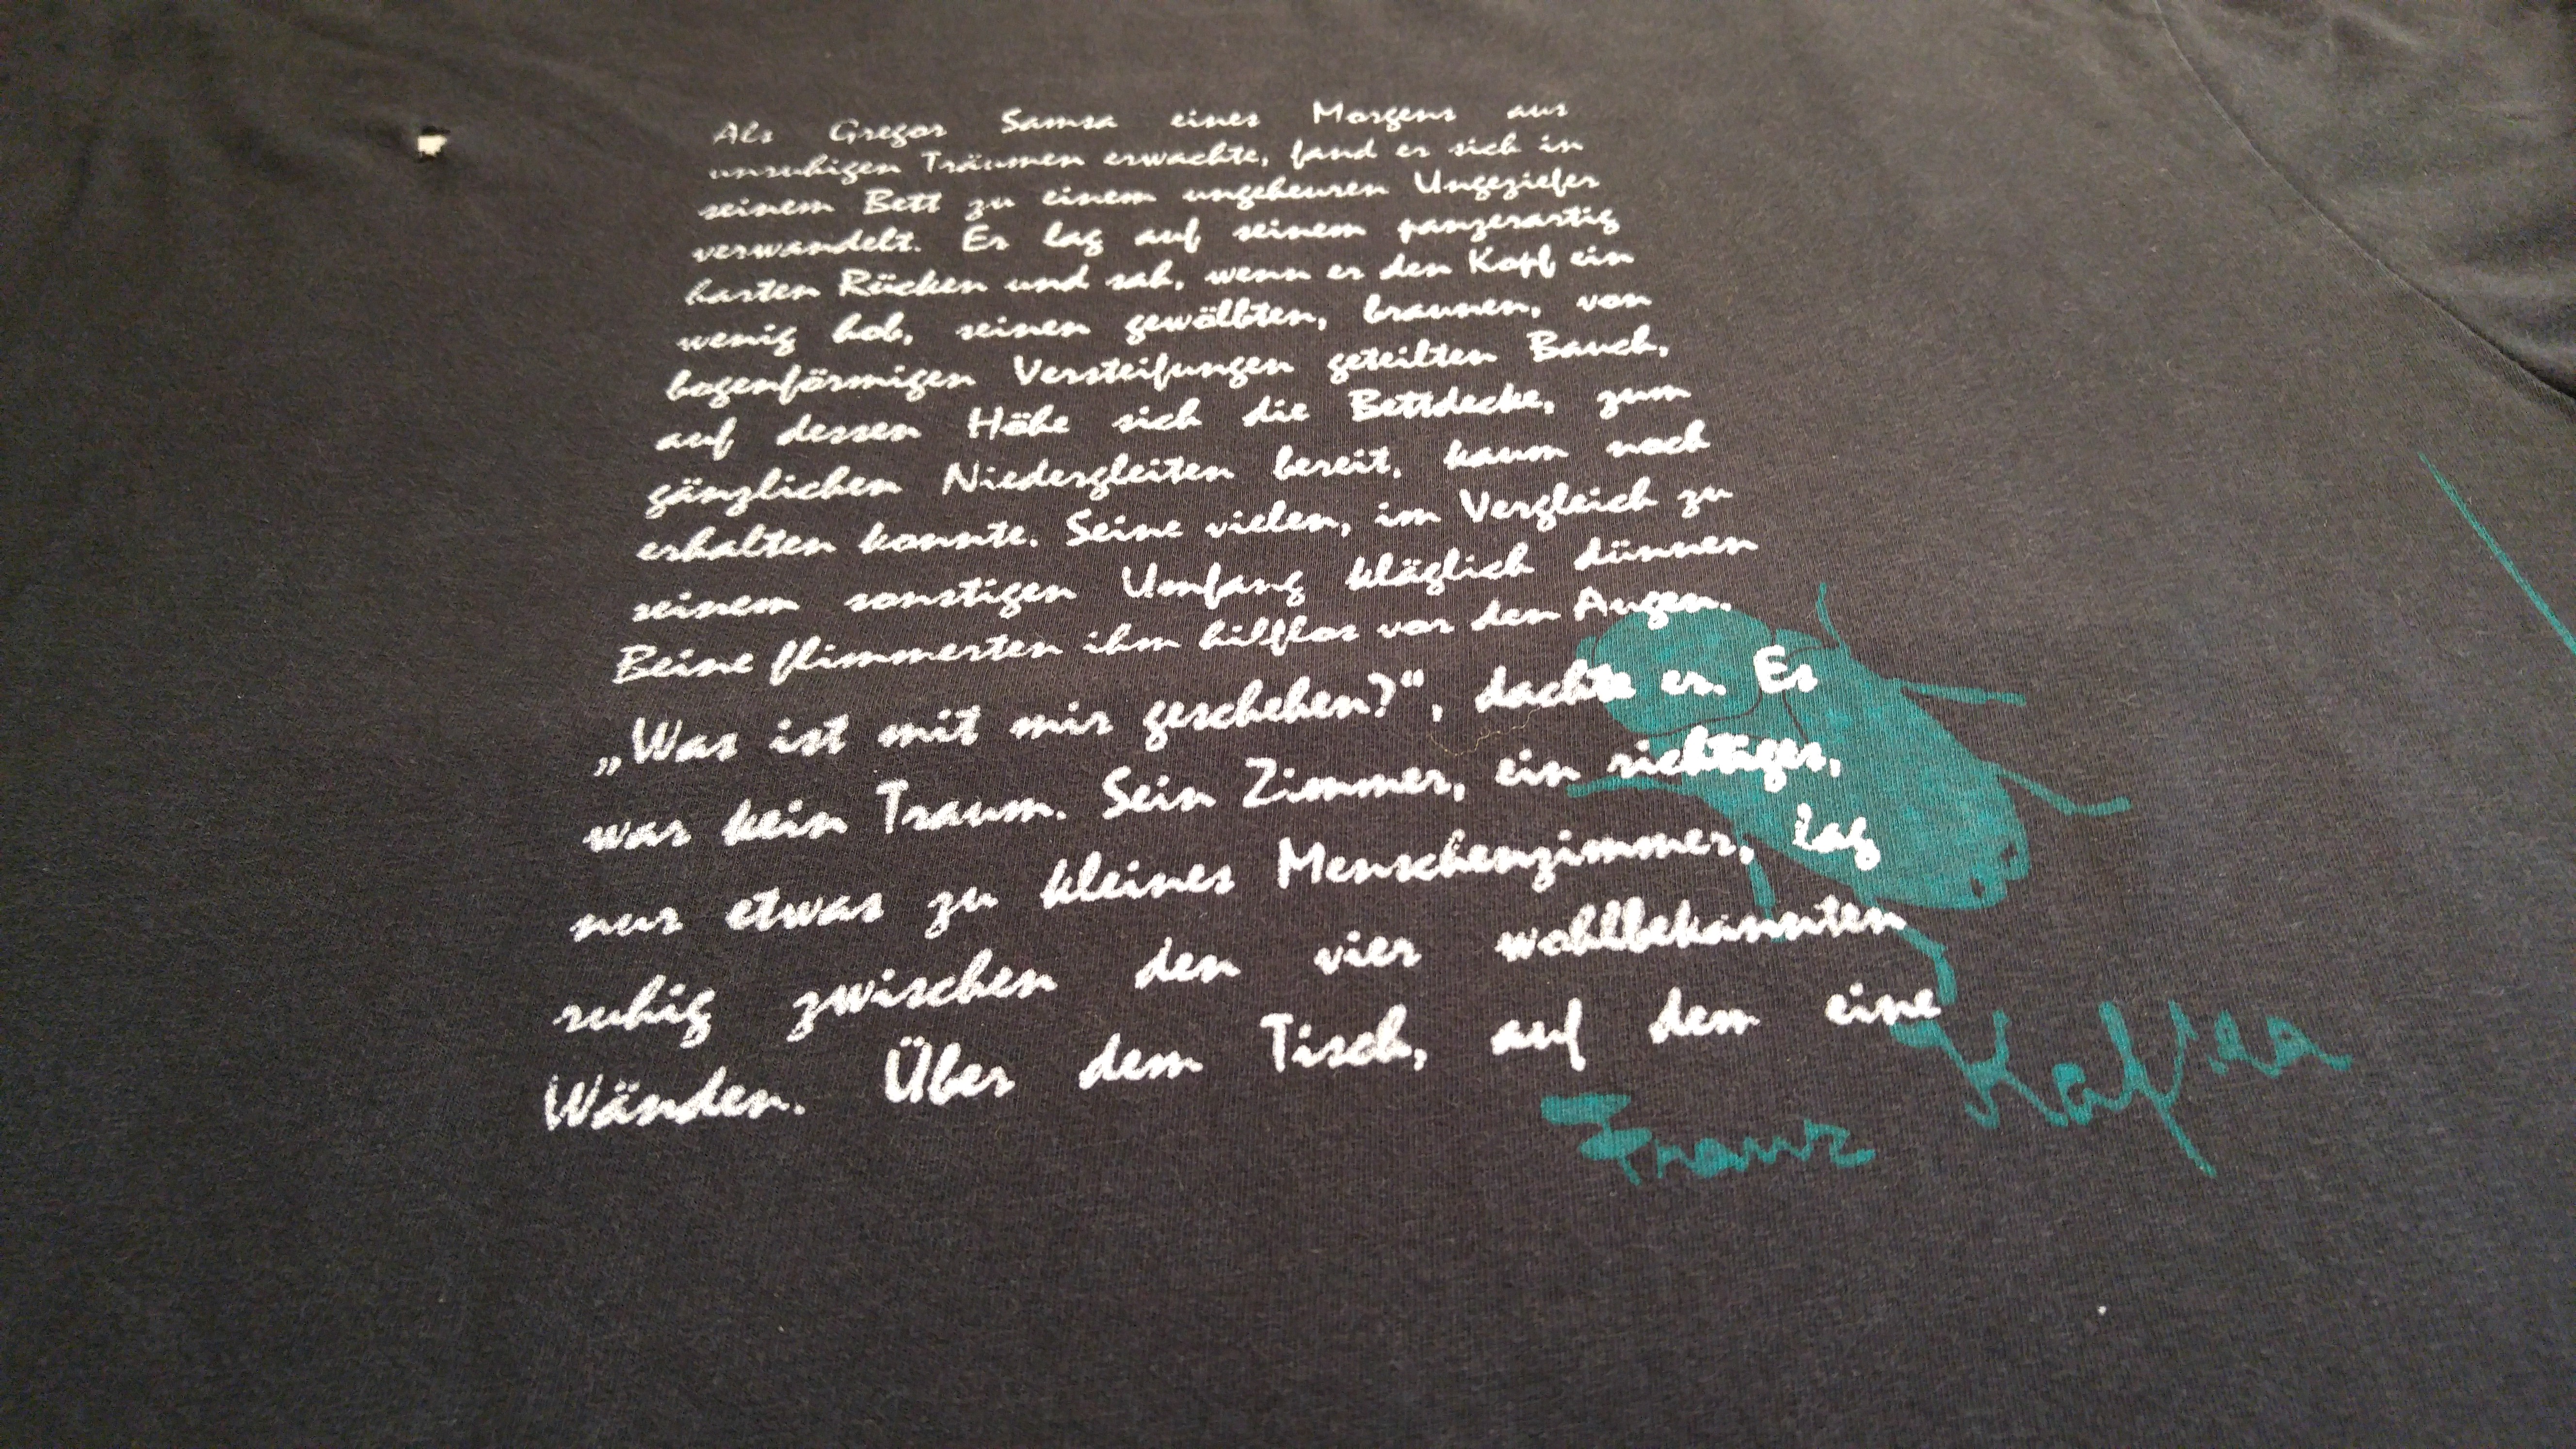 Als Gregor Samsa eines Morgens aus
unruhigen Träumen erwachte, fand er sich in
seinem Bett zu einem ungeheuren Ungeziefer
verwandelt. Er lag auf seinem panzerartig
harten Rücken und sah, wenn er den Kopf ein
wenig hob, seinen gewölbten, braunen, von
bogenförmigen Versteifungen geteilten Bauch,
auf dessen Höhe sich die Bettdecke, zum
gänzlichen Niedergleiten bereit, kaum noch
erhalten konnte. Seine vielen, im Vergleich zu
seinem sonstigen Umfang kläglich dünnen
Beine flimmerten ihm hilflos vor den Augen.
„Was ist mit mir geschehen?“, dachte er. Es
war kein Traum. Sein Zimmer, ein richtiges,
nur etwas zu kleines Menschenzimmer, lag
ruhig zwischen den vier wohlbekannten
Wänden. Über dem Tisch, auf dem eine
Franz Kafka